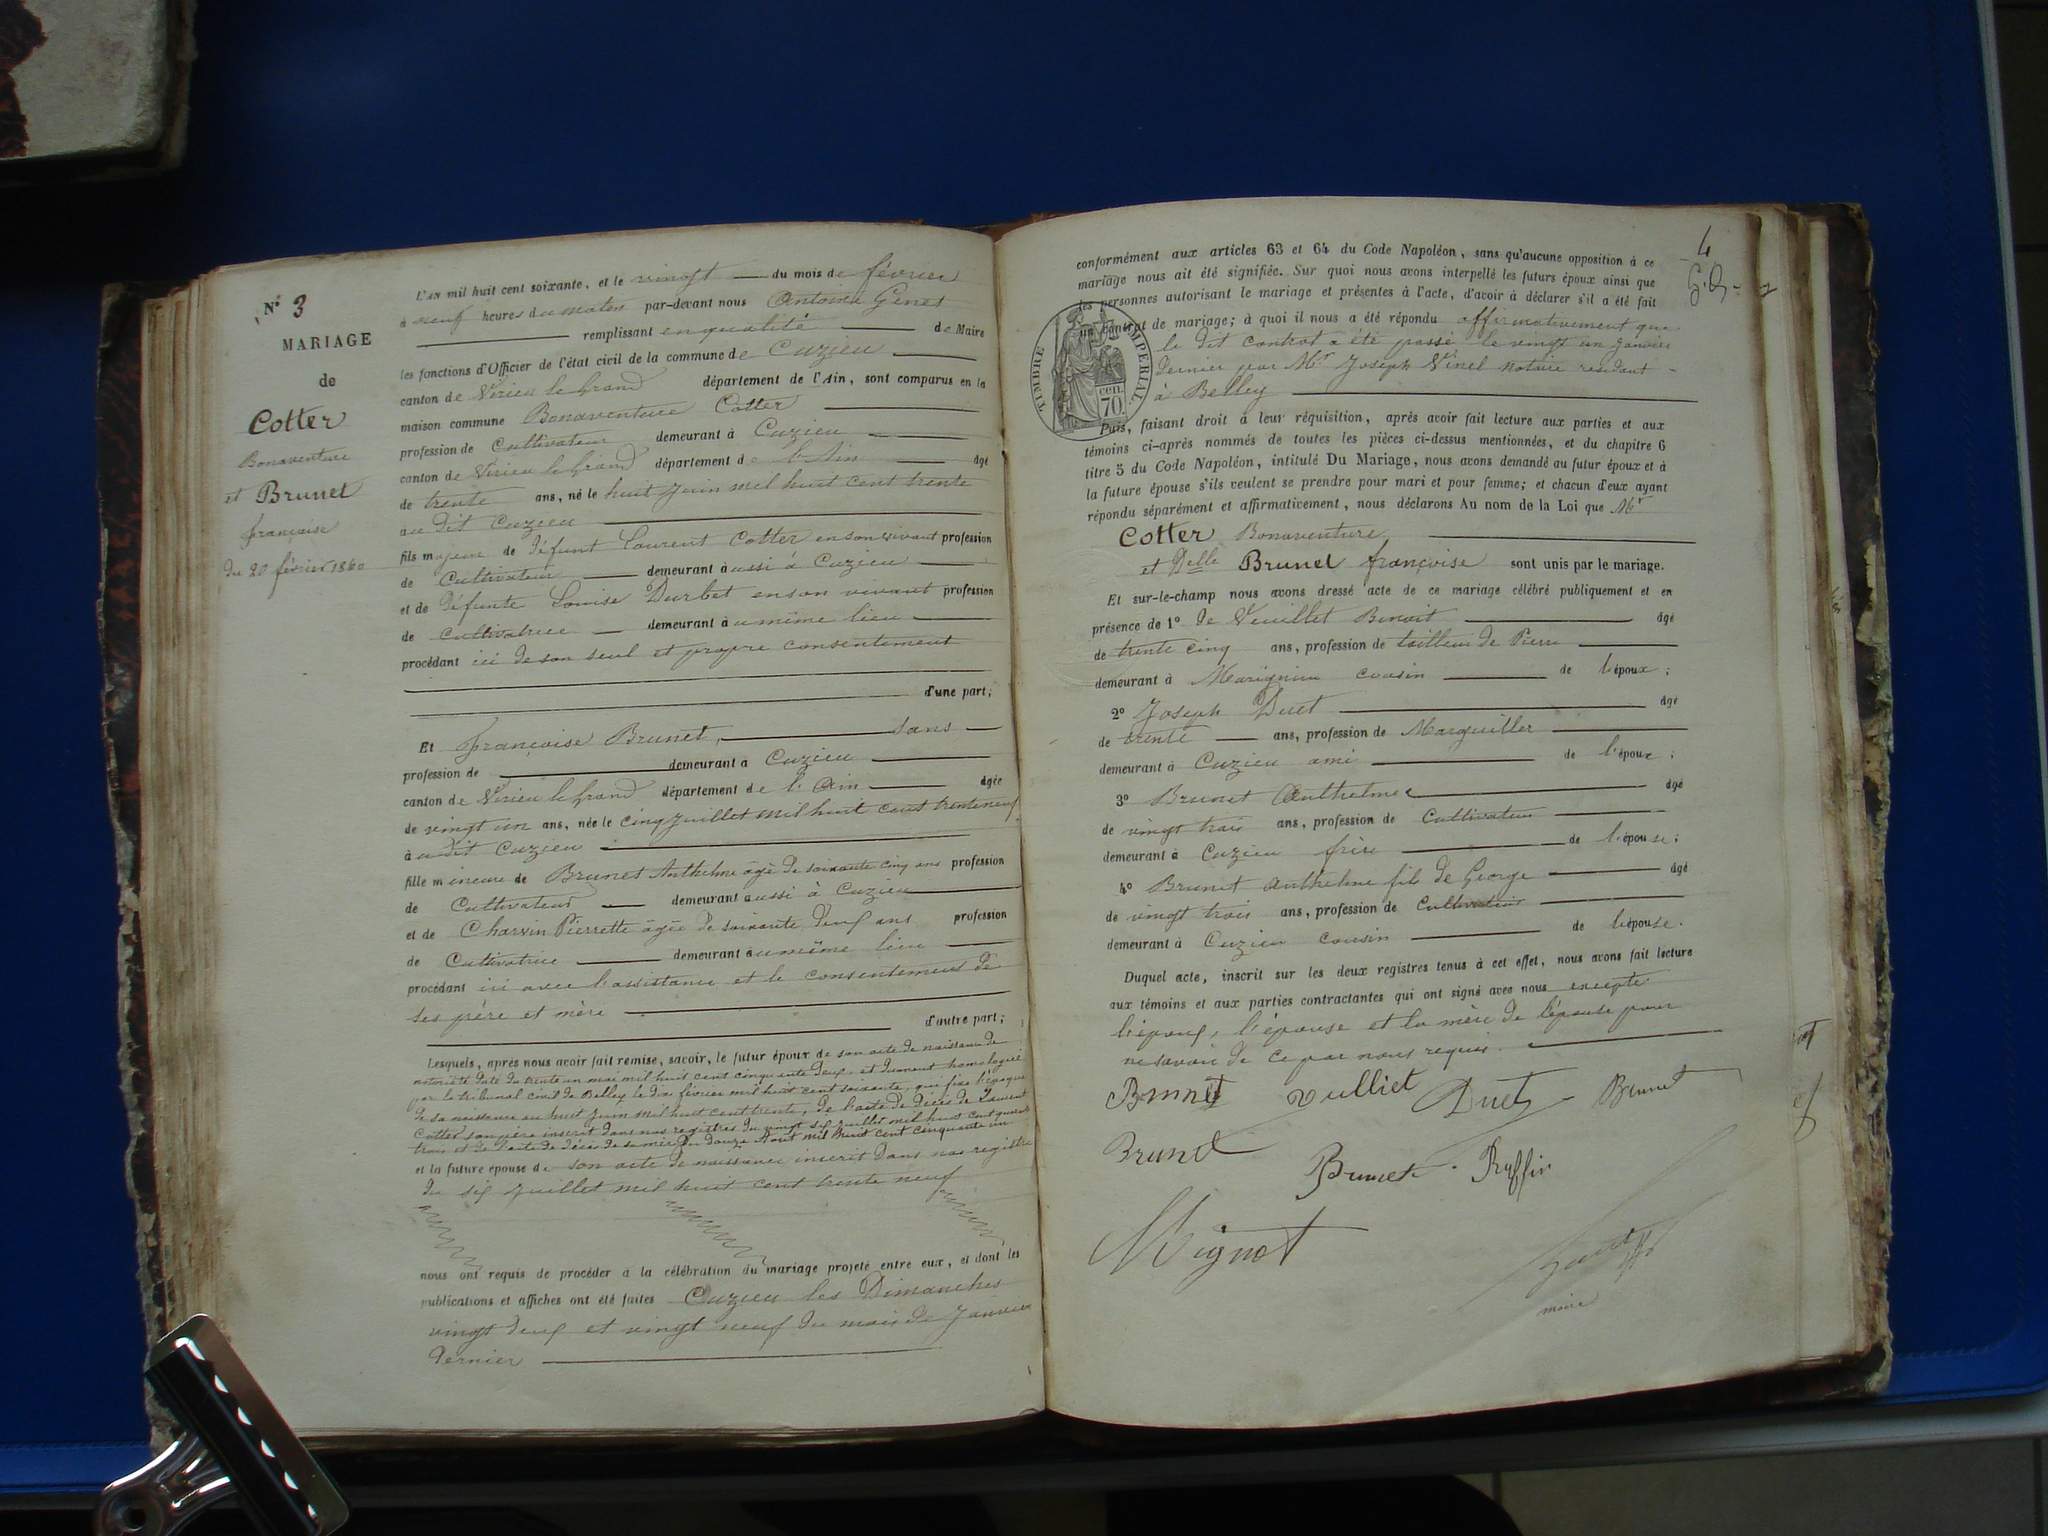 N° 3
MARIAGE
de
Cotter
Bonaventure
et Brunet
françoise
du 20 février 1860
L'AN mil huit cent soixante, et le vingt du mois de février
à neuf heures du matin par-devant nous Antoine Genet
remplissant en qualité de Maire
les fonctions d'Officier de l'état civil de la commune de Cuzieu
canton de Virieu le Grand département de l'Ain, sont comparus en la
maison commune Bonaventure Cotter
profession de Cultivateur demeurant à Cuzieu
canton de Virieu le Grand département de l'Ain âgé
de trente ans, né le huit Juin mil huit cent trente
au dit Cuzieu
fils majeur de défunt Laurent Cotter en son vivant profession
de Cultivateur demeurant aussi à Cuzieu
et de défunte Louise Durbet en son vivant profession
de Cultivatrice demeurant au même lieu
procédant ici de son seul et propre consentement
d'une part;
Et françoise Brunet, sans
profession de demeurant à Cuzieu
canton de Virieu le Grand département de l'Ain âgée
de vingt un ans, née le cinq Juillet mil huit cent trente neuf
à udit Cuzieu
fille mineure de Brunet Anthelme âgé de soixante cinq ans profession
de Cultivateur demeurant aussi à Cuzieu
et de Charvin Pierrette âgée de soixante deux ans profession
de Cultivatrice demeurant au même lieu
procédant ici avec l'assistance et le consentement de
ses père et mère
d'autre part;
Lesquels, après nous avoir fait remise, savoir, le futur époux de son acte de naissance de
notoriété daté du trente un mai mil huit cent cinquante deux, et duement homologué
par le tribunal civil de Belley le dix février mil huit cent soixante, qui fixe l'époque
de sa naissance au huit Juin mil huit cent trente, de l'acte de décès de Laurent
Cotter son père inscrit dans nos registres du vingt six juillet mil huit cent quarante
trois et de l'acte de décès de sa mère du douze Août mil huit cent cinquante un
et la future épouse de son acte de naissance inscrit dans nos registres
du six Juillet mil huit cent trente neuf
nous ont requis de procéder à la célébration du mariage projeté entre eux, et dont les
publications et affiches ont été faites Cuzieu les Dimanches
vingt deux et vingt neuf du mois de Janvier
dernier
4
conformément aux articles 63 et 64 du Code Napoléon, sans qu'aucune opposition à ce
mariage nous ait été signifiée. Sur quoi nous avons interpellé les futurs époux ainsi que
les personnes autorisant le mariage et présentes à l'acte, d'avoir à déclarer s'il a été fait
un contrat de mariage; à quoi il nous a été répondu affirmativement que
le dit contrat a été passé le vingt un Janvier
dernier par Mr Joseph Vinel notaire résidant
à Belley
TIMBRE IMPERIAL
70 cen.
Puis, faisant droit à leur réquisition, après avoir fait lecture aux parties et aux
témoins ci-après nommés de toutes les pièces ci-dessus mentionnées, et du chapitre 6
titre 5 du Code Napoléon, intitulé Du Mariage, nous avons demandé au futur époux et à
la future épouse s'ils veulent se prendre pour mari et pour femme; et chacun d'eux ayant
répondu séparément et affirmativement, nous déclarons Au nom de la Loi que Mr
Cotter Bonaventure
et Delle Brunet françoise sont unis par le mariage.
Et sur-le-champ nous avons dressé acte de ce mariage célébré publiquement et en
présence de 1° de Veuillet Benoit âgé
de trente cinq ans, profession de tailleur de Pierre
demeurant à Marignieu cousin de l'époux;
2° Joseph Duet âgé
de trente ans, profession de Marguiller
demeurant à Cuzieu ami de l'époux;
3° Brunet Anthelme âgé
de vingt trois ans, profession de Cultivateur
demeurant à Cuzieu frère de l'épouse;
4° Brunet Anthelme fils de George âgé
de vingt trois ans, profession de Cultivateur
demeurant à Cuzieu cousin de l'épouse.
Duquel acte, inscrit sur les deux registres tenus à cet effet, nous avons fait lecture
aux témoins et aux parties contractantes qui ont signé avec nous excepté
l'époux, l'épouse et la mère de l'épouse pour
ne savoir de ce par nous requis.
Brunet Vulliet Duet Brunet
Brunet
Brunet Ruffin
Mignot
maire